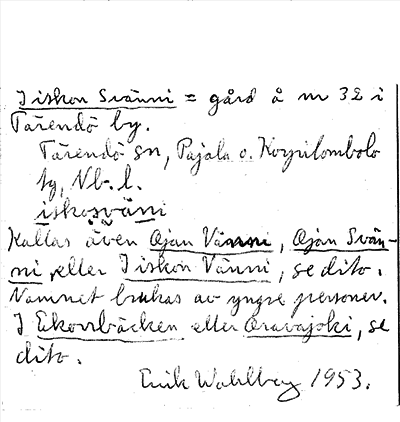 Iiskon Svänni = gård å nr 32 i
Tärendö by.
Tärendö sn, Pajala o. Korpilombolo
tg, Nb. l.
iiskosväni
Kallas även Ojan Vänni, Ojan Svän-
ni, eller Iiskon Vänni, se dito.
Namnet brukas av yngre personer.
I Ekorrbäcken eller Oravajoki, se
dito.
Erik Wahlberg 1953.